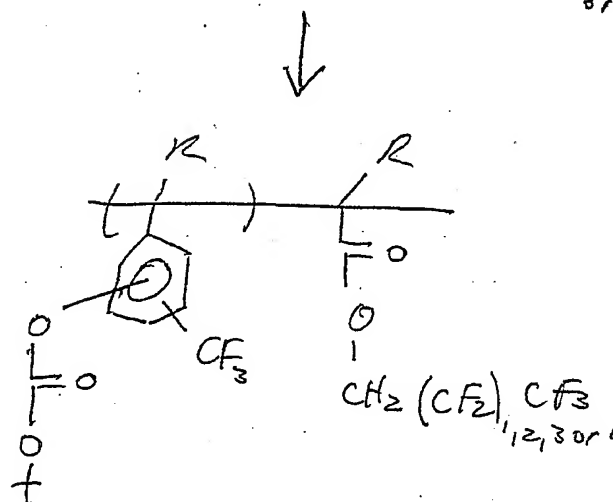 or
R
R
( )
O
O
CF3
O
O
O
CH2 (CF2)1,2,3 or CF3